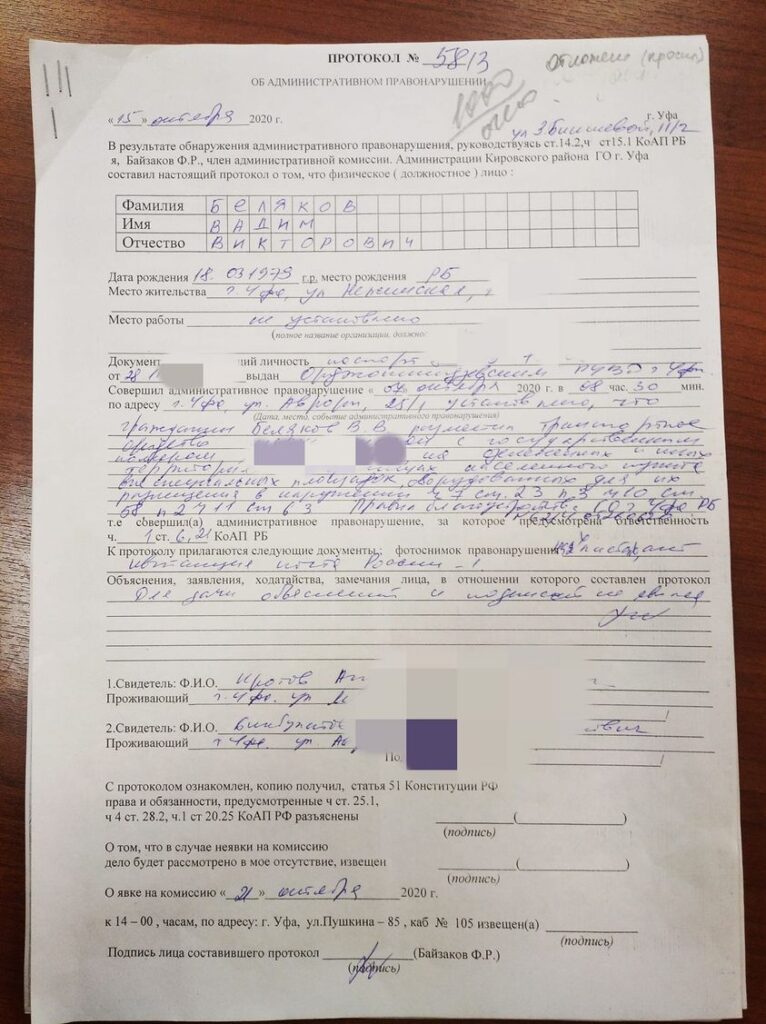 ПРОТОКОЛ № 5813
отложено
ОБ АДМИНИСТРАТИВНОМ ПРАВОНАРУШЕНИИ
«15» октября 2020 г. г. Уфа
ул З.Биишевой, 11/2
В результате обнаружения административного правонарушения, руководствуясь ст.14.2,ч ст15.1 КоАП РБ
я, Байзаков Ф.Р., член административной комиссии. Администрации Кировского района ГО г. Уфа
составил настоящий протокол о том, что физическое ( должностное ) лицо :
Фамилия БЕЛЯКОВ
Имя ВАДИМ
Отчество ВИКТОРОВИЧ
Дата рождения 18.03 1979 г.р. место рождения РБ
Место жительства г. Уфа, ул
Место работы не установлено
(полное название организации, должно
Документ ий личность паспорт
от 28 выдан Орджоникидзевским РУВД г Уфы
Совершил административное правонарушение « октября 2020 г. в 08 час. 30 мин.
по адресу г. Уфа, ул. Авроры 25/1 установлено, что
(Дата, место, событие административного правонарушения)
гражданин Беляков В.В. разместил транспортное
средство с государственным
номером на озелененных и иных
территориях населенного пункта
вне специальных площадок, оборудованных для их
размещения в нарушении ч 7 ст. 23 п 3 ч 10 ст
68 п 2 ч 11 ст 63 Правил благоустройства ГО г Уфа РБ
т.е совершил(а) административное правонарушение, за которое предусмотрена ответственность
ч. 1 ст. 6.21 КоАП РБ
К протоколу прилагаются следующие документы : фотоснимок правонарушения
квитанция почта России - 1
Объяснения, заявления, ходатайства, замечания лица, в отношении которого составлен протокол
Для дачи объяснений и подписей не явился
1.Свидетель: Ф.И.О. Кротов
Проживающий г. Уфа. ул
2.Свидетель: Ф.И.О.
Проживающий г Уфа. ул.
С протоколом ознакомлен, копию получил, статья 51 Конституции РФ
права и обязанности, предусмотренные ч ст. 25.1,
ч 4 ст. 28.2, ч.1 ст 20.25 КоАП РФ разъяснены ( )
(подпись)
О том, что в случае неявки на комиссию
дело будет рассмотрено в мое отсутствие, извещен ( )
(подпись)
О явке на комиссию «21» октября 2020 г.
к 14 – 00 , часам, по адресу: г. Уфа, ул.Пушкина – 85 , каб № 105 извещен(а)
(подпись)
Подпись лица составившего протокол (Байзаков Ф.Р.)
(подпись)